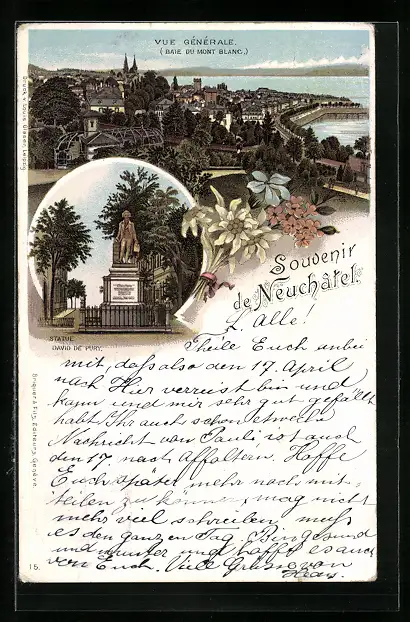 VUE GÉNÉRALE.
(BAIE DU MONT BLANC.)
Druck v. Louis Glaser, Leipzig
Souvenir
de Neuchâtel.
STATUE
DAVID DE PURY.
L. Alle!
Theile Euch anbei
mit, dass also den 17. April
nach Hier verreist bin und
kann und mir sehr gut gefällt
habt Ihr auch schon etwelche
Nachricht von Pauli, ist auch
den 17. nach Affoltern. Hoffe
Euch später mehr noch mit-
teilen zu können, mag nicht
mehr viel schreiben, muss
es den ganzen Tag. Bin gesund
und munter und hoffe es auch
von Euch. Viele Grüsse von
Briquet & Fils, Editeurs, Genève.
15.